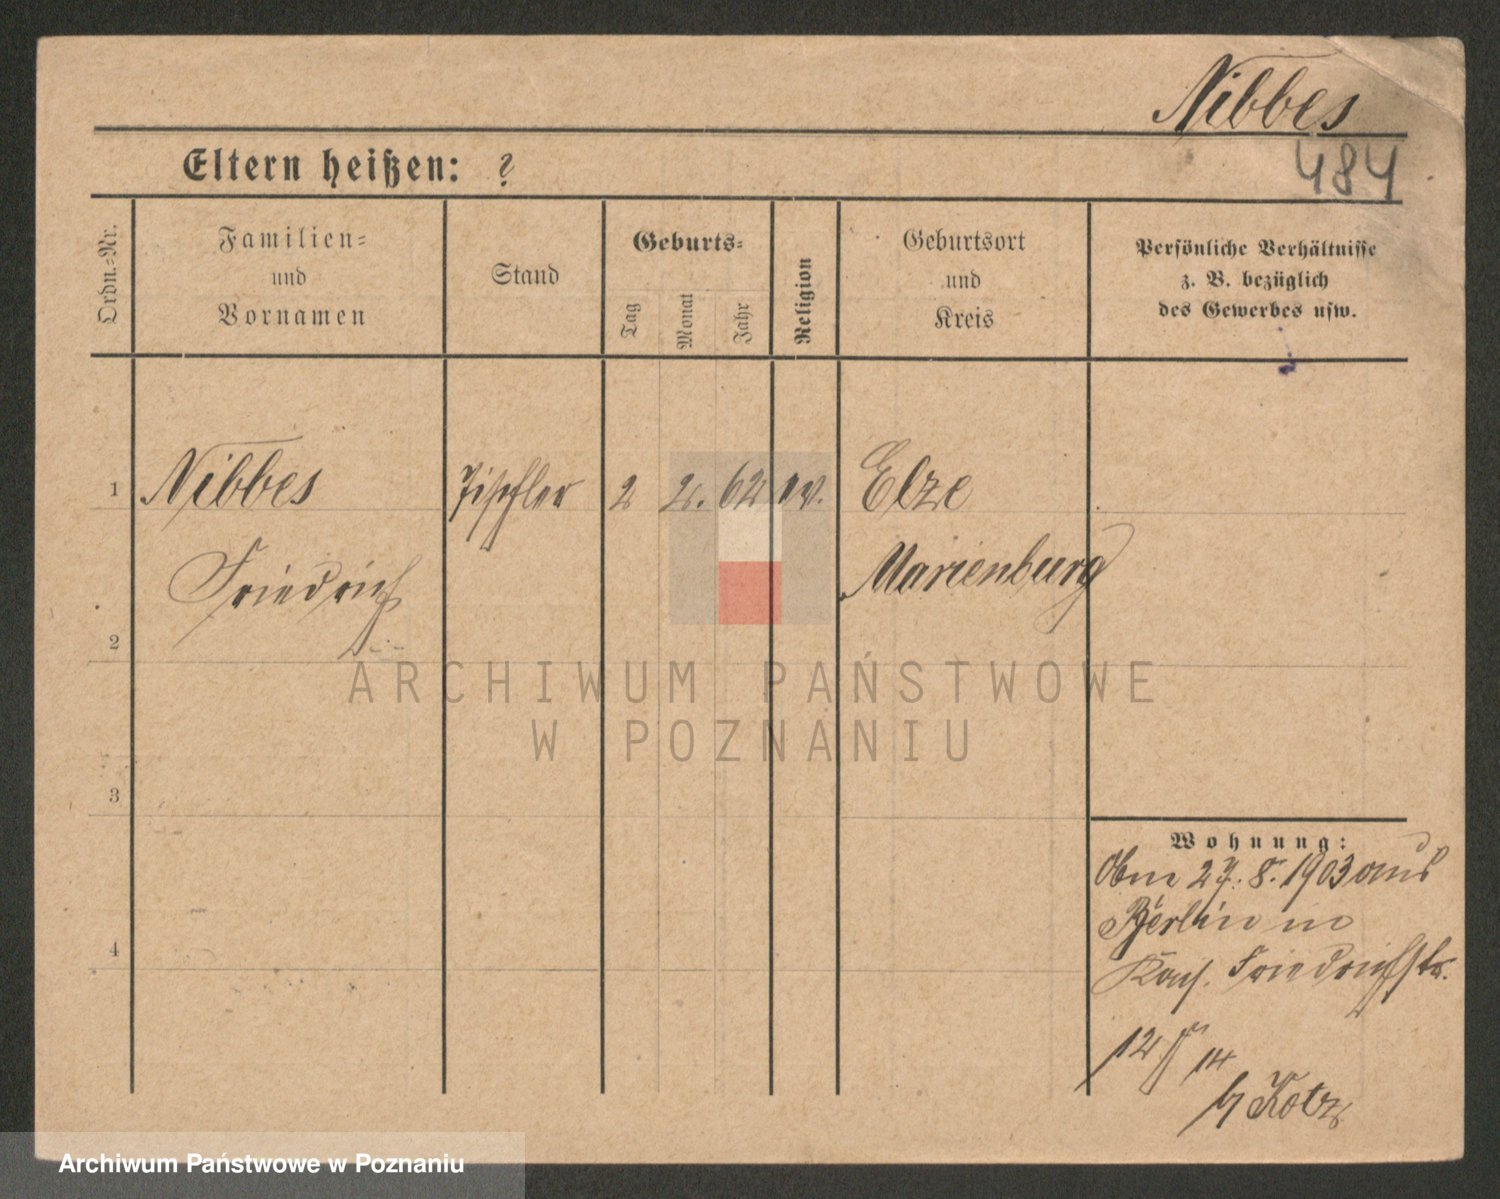 Nibbes
484
Eltern heißen: ?
Ordn.-Nr.
Familien-
und
Vornamen
Stand
Geburts-
Tag
Monat
Jahr
Religion
Geburtsort
und
Kreis
Persönliche Verhältnisse
z. B. bezüglich
des Gewerbes usw.
1 Nibbes Tischler 2 2. 62 ev. Elze
Friedrich Marienburg
2
3
4
Wohnung:
27. 8. 1903 aus
Berlin in
Friedrichstr.
12
14
b/ Kotz
ARCHIWUM PAŃSTWOWE
W POZNANIU
Archiwum Państwowe w Poznaniu